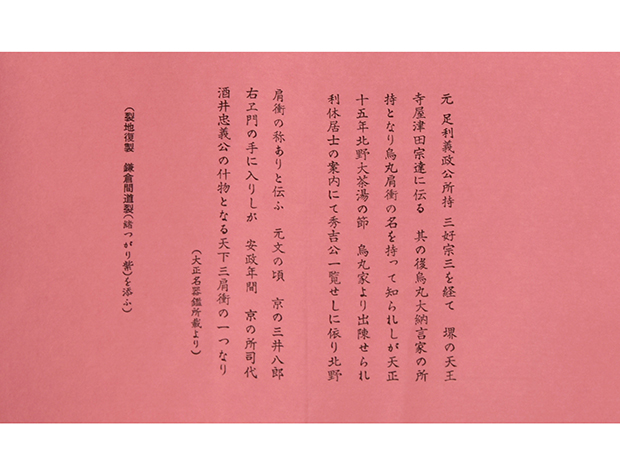 元 足利義政公所持 三好宗三を経て 堺の天王
寺屋津田宗達に伝る 其の後烏丸大納言家の所
持となり烏丸肩衝の名を持って知られしが天正
十五年北野大茶湯の節 烏丸家より出陳せられ
利休居士の案内にて秀吉公一覧せしに依り北野
肩衝の称ありと伝ふ 元文の頃 京の三井八郎
右ヱ門の手に入りしが 安政年間 京の所司代
酒井忠義公の什物となる天下三肩衝の一つなり
(大正名器鑑所載より)
(裂地復製 鎌倉間道製(緒つがり紫)を添ふ)